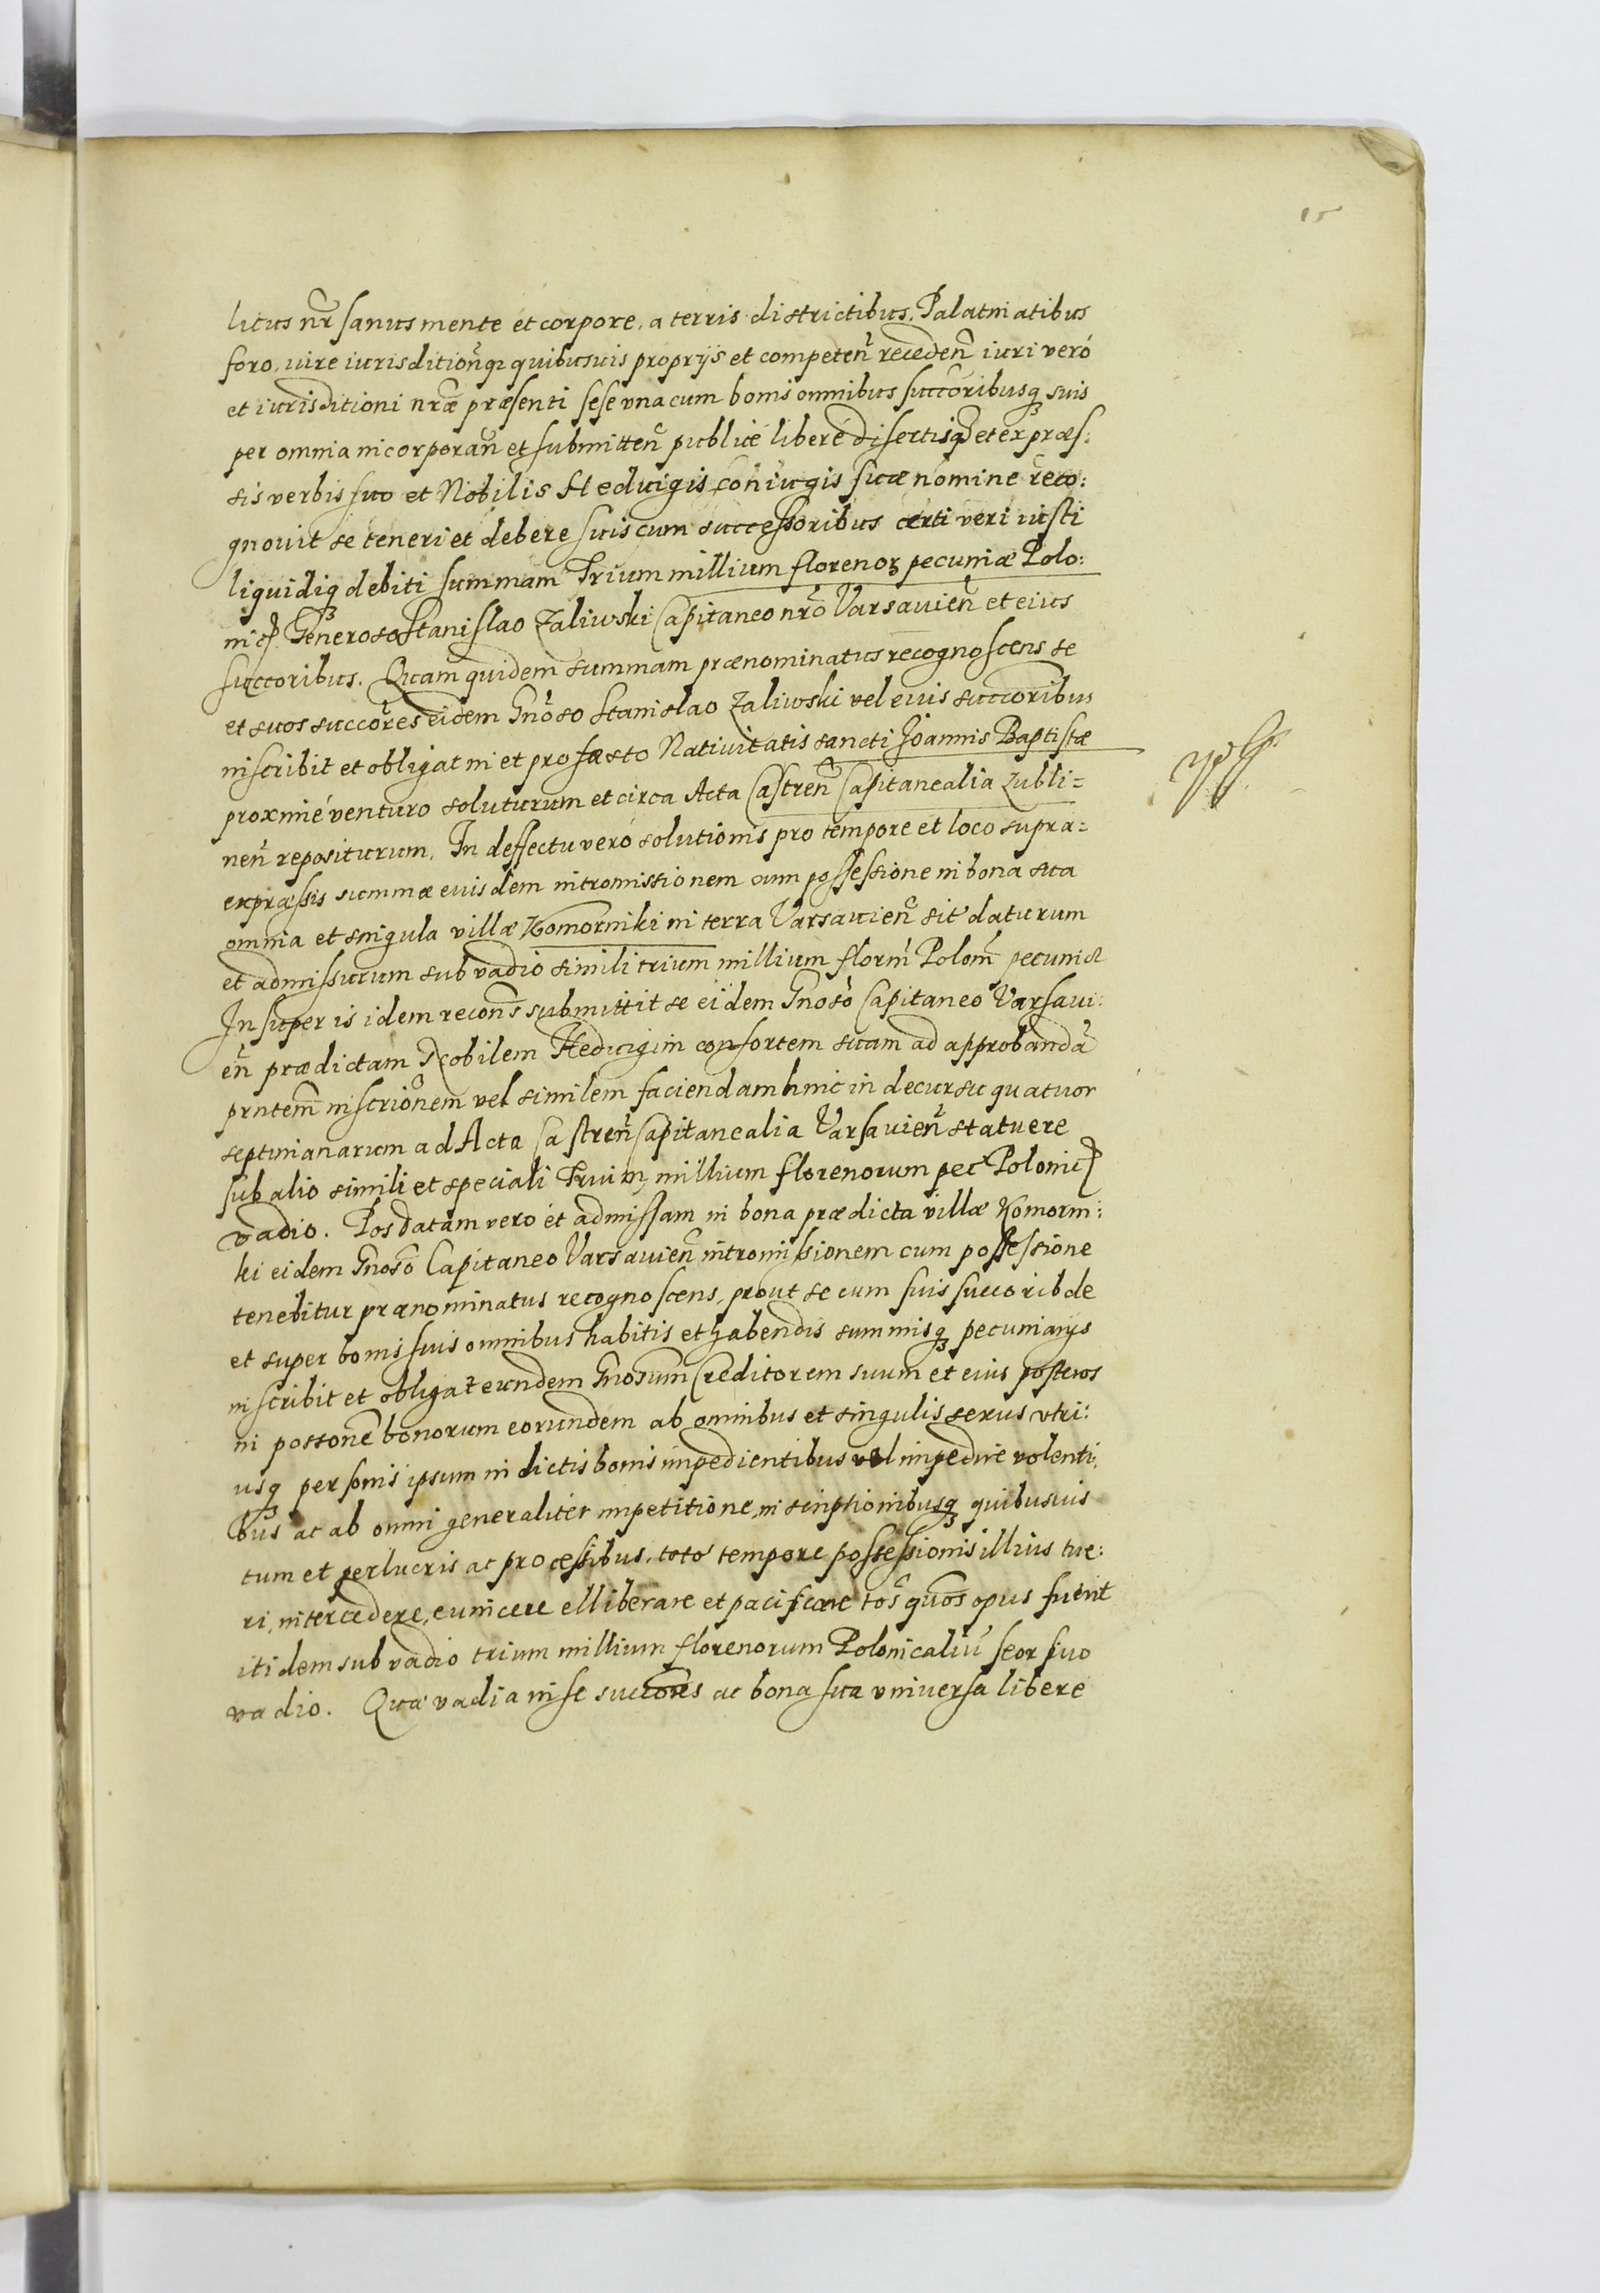 15
litus nr̃ sanus mente et corpore, a terris districtibus, Palatinatibus
foro, iure iurisditionq̃ quibusuis proprijs et competeñ recedeñ iuri veró
et iurisditioni nrãe præsenti sese vna cum bonis omnibus succoribusq suis
per omnia incorporañ et submitteñ publicé liberé disertisq et expræs:
sis verbis suo et Nobilis Heduigis coniugis suæ nomine reco:
gnouit se teneri et debere suis cum successoribus certi veri iusti
liquidiq debiti summam Trium millium florenoꝝ pecuniæ Polo:
nic̃ Generoso Stanislao Zaliwski Capitaneo nrõ Varsauieñ et eius
succoribus. Quam quidem summam prænominatus recognoscens se
et suos succores eidem Gnõso Stanislao Zaliwski vel eius succoribus
inscribit et obligat in et pro fæsto Natiuitatis sancti Joannis Baptistæ
proximé venturo soluturum et circa Acta Castreñ Capitanealia Zubli=
neñ repositurum. In deffectu veró solutionis pro tempore et loco supra=
expræssis summæ euisdem intromissionem cum possessione in bona sua
omnia et singula villæ Komorniki in terra Varsauieñ sit daturum
et admissurum sub vadio simili trium millium florm̃ Polom̃ pecuniæ
Insuper is idem recons̃ submittit se eidem Gnoso Capitaneo Varsaui:
eñ prædictam Nobilem Heduigim consortem suam ad approbandã
prntem̃ inscrionem vel similem faciendam hinc in decursu quatuor
septimanarum ad Acta Castreñ Capitanealia Varsauieñ statuere
sub alio simili et speciali Trium millium florenorum pec Polonic̃
vadio. Pos datam vero et admissam in bona prædicta villæ Komorni:
ki eidem Gnoso Capitaneo Varsauieñ intromissionem cum possessione
tenebitur prænominatus recognoscens, prout se cum suis succorib de
et super bonis suis omnibus habitis et habendis summisq pecuniarijs
inscribit et obligat eundem Gnosum Creditorem suum et eius posteros
in possone bonorum eorundem ab omnibus et singulis sexus vtri:
usq personis ipsum in dictis bonis impedientibus vel impedire volenti,
bus ac ab omni generaliter impetitione, inscriptionibusq quibusuis
tum et perlucris ac processibus, toto tempore possessionis illius tue:
ri, intercedere, euincere elliberare et pacificare tos̃ quos̃ opus fuerit
itidem sub vadio trium millium florenorum Polonicaliu seorsiuo
vadio. Quæ vadia in se succores ac bona sua vniuersa libere